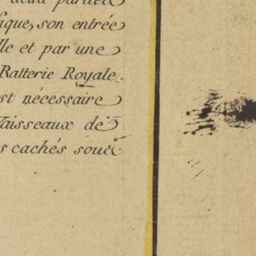 fique, son entrée
lle et par une
Ratterie Royale.
st nécessaire
Vaisseaux de
s cachés sous